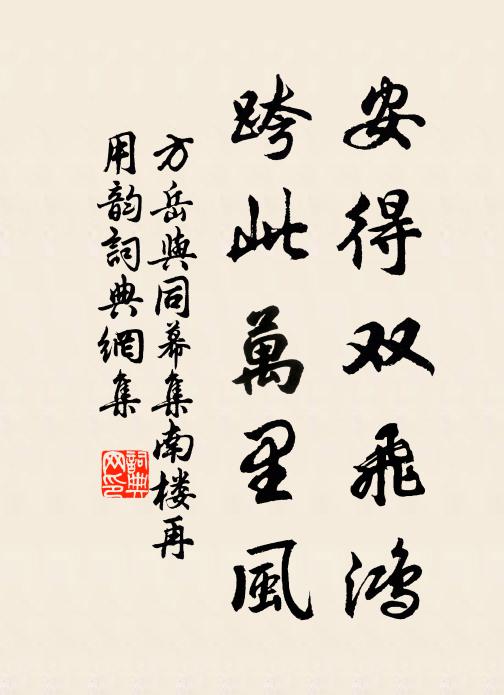 安得双飛鴻
跨此萬里風
方岳與同幕集南楼再
用韵詞典網集
詞典网印